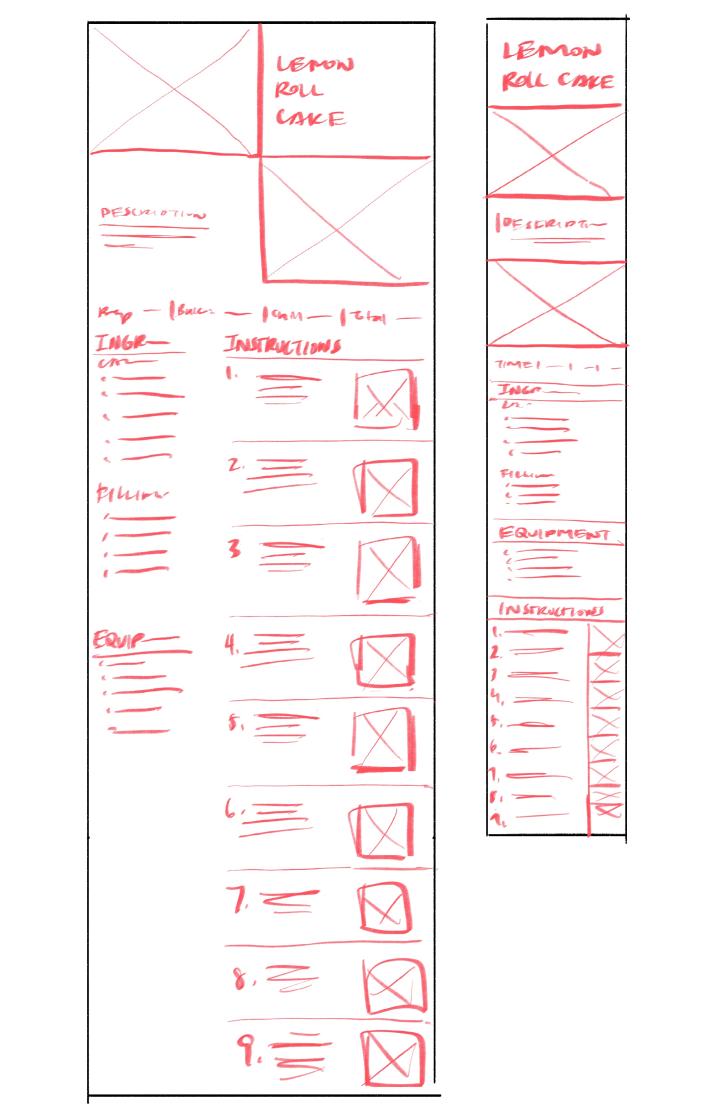 LEMON
ROLL
CAKE
DESCRIPTION
Prep | Bake | Chill | Total
INGR
INSTRUCTIONS
CAKE
1.
2.
3
FILLING
4.
EQUIP
5.
6.
7.
8.
9.
LEMON
ROLL CAKE
DESCRIPTION
TIME |
INGR
FILLING
EQUIPMENT
INSTRUCTIONS
1.
2.
3
4.
5.
6.
7.
8.
9.